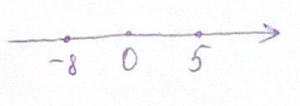 -8 0 5